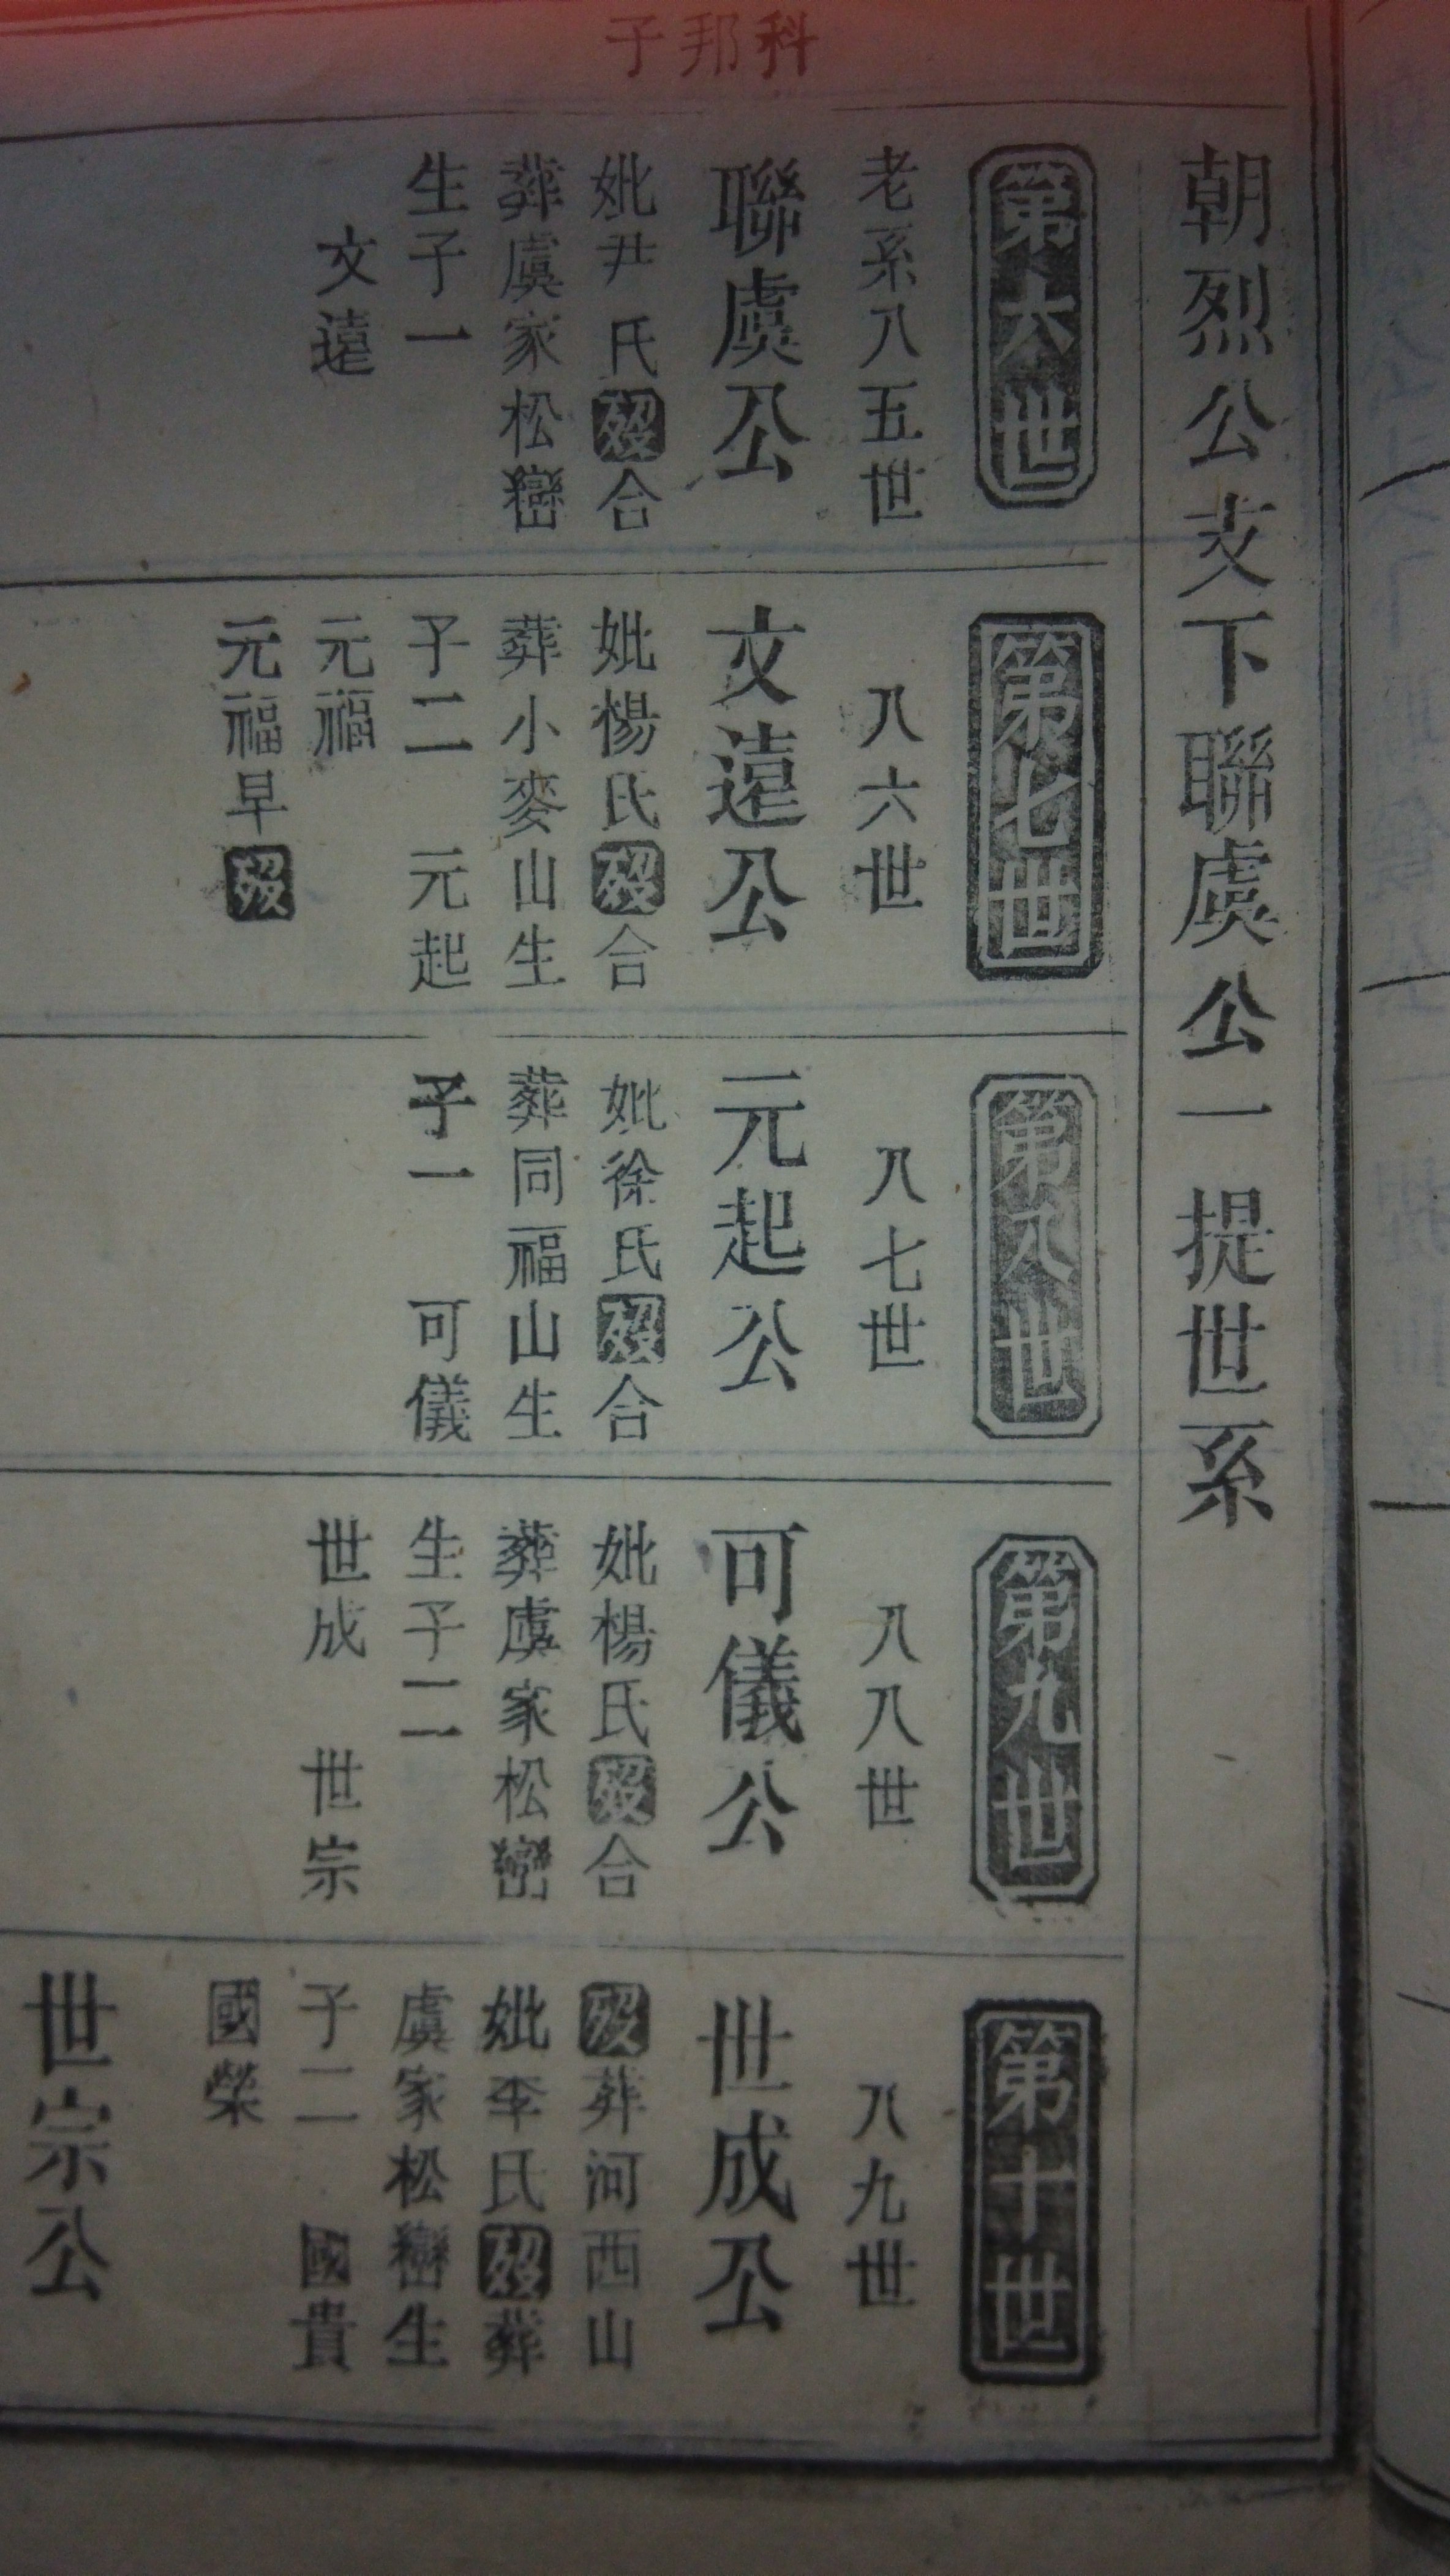 子邦科
朝烈公支下聯虞公一提世系
第六世
老系八五世
聯虞公
妣尹氏歿合
葬虞家松巒
生子一
文遠
第七世
八六世
文遠公
妣楊氏歿合
葬小麥山生
子二 元起
元福
元福早歿
第八世
八七世
元起公
妣徐氏歿合
葬同福山生
子一 可儀
第九世
八八世
可儀公
妣楊氏歿合
葬虞家松巒
生子二
世成 世宗
第十世
八九世
世成公
歿葬河西山
妣李氏歿葬
虞家松巒生
子二 國貴
國榮
世宗公